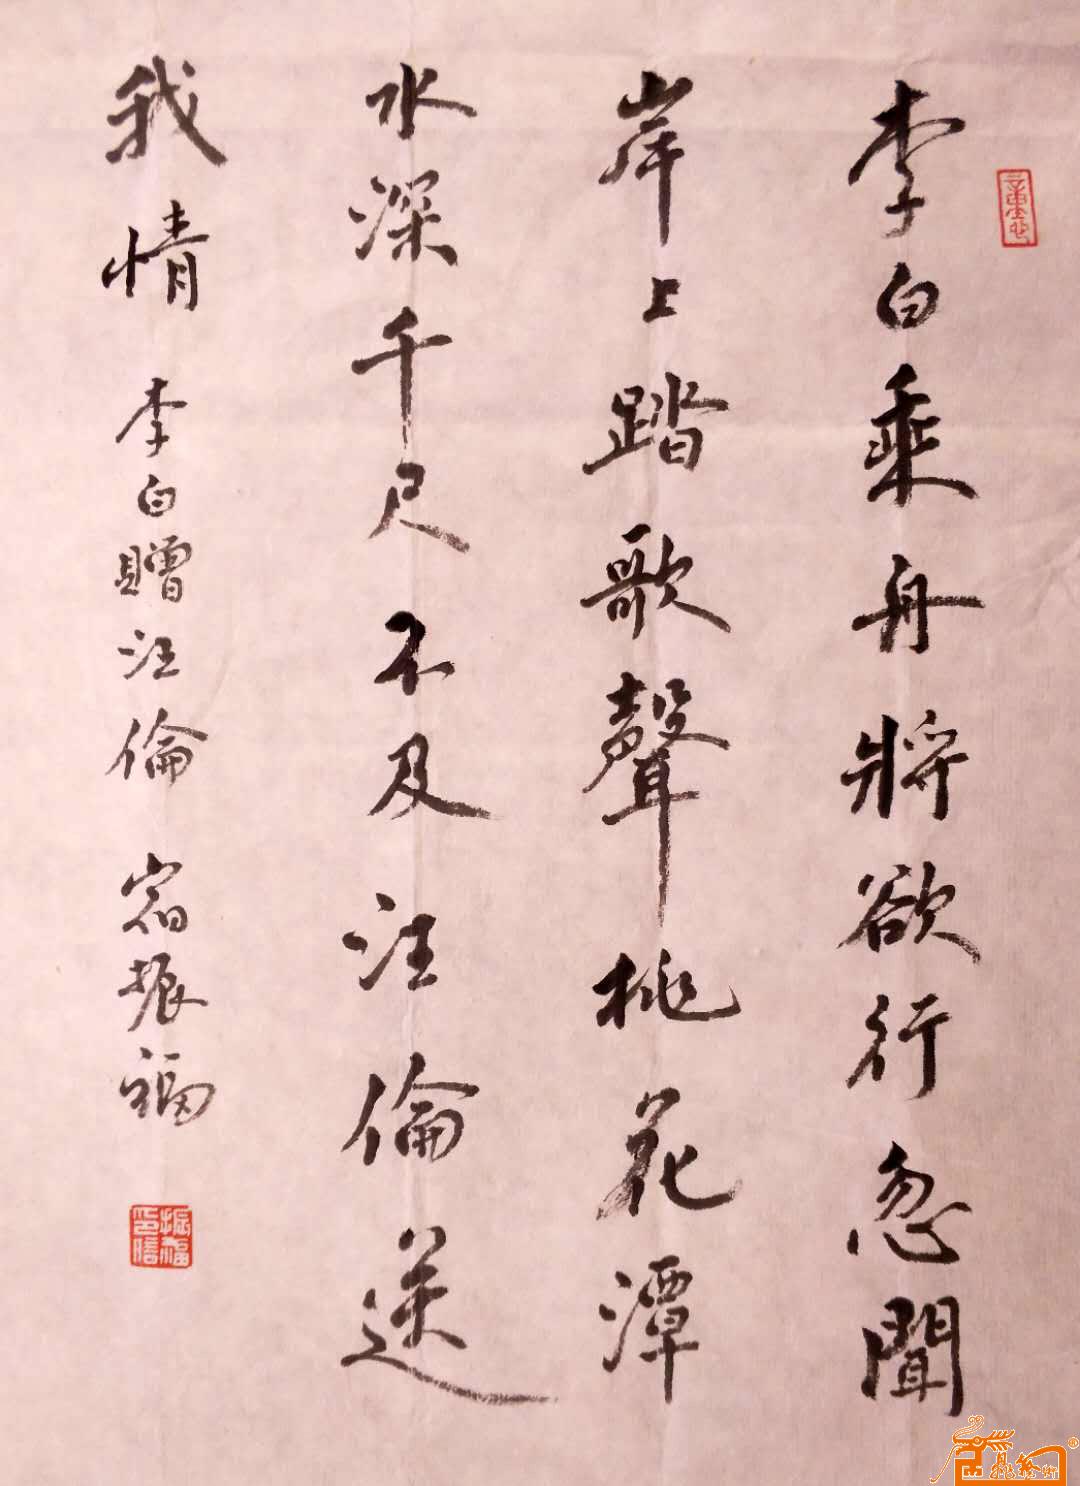 李白乘舟將欲行忽聞
岸上踏歌聲桃花潭
水深千尺不及汪倫送
我情
李白贈汪倫 宿振福
振福印信